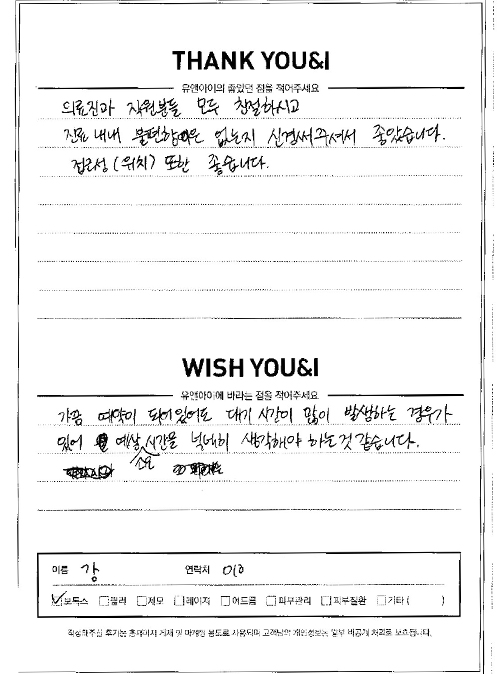 THANK YOU&I
유앤아이의 좋았던 점을 적어주세요
의료진과 직원분들 모두 친절하시고
진료 내내 불편함은 없는지 신경써주셔서 좋았습니다.
접근성(위치) 또한 좋습니다.
WISH YOU&I
유앤아이에 바라는 점을 적어주세요
가끔 예약이 되어있어도 대기 시간이 많이 발생하는 경우가
있어 예상 소요 시간을 넉넉히 생각해야 하는것 같습니다.
이름 강 연락처 010
보톡스 필러 제모 레이저 여드름 피부관리 피부질환 기타 ( )
작성해주신 후기는 홈페이지 게재 및 마케팅 용도로 사용되며 고객님의 개인정보는 일부 비공개 처리로 보호됩니다.